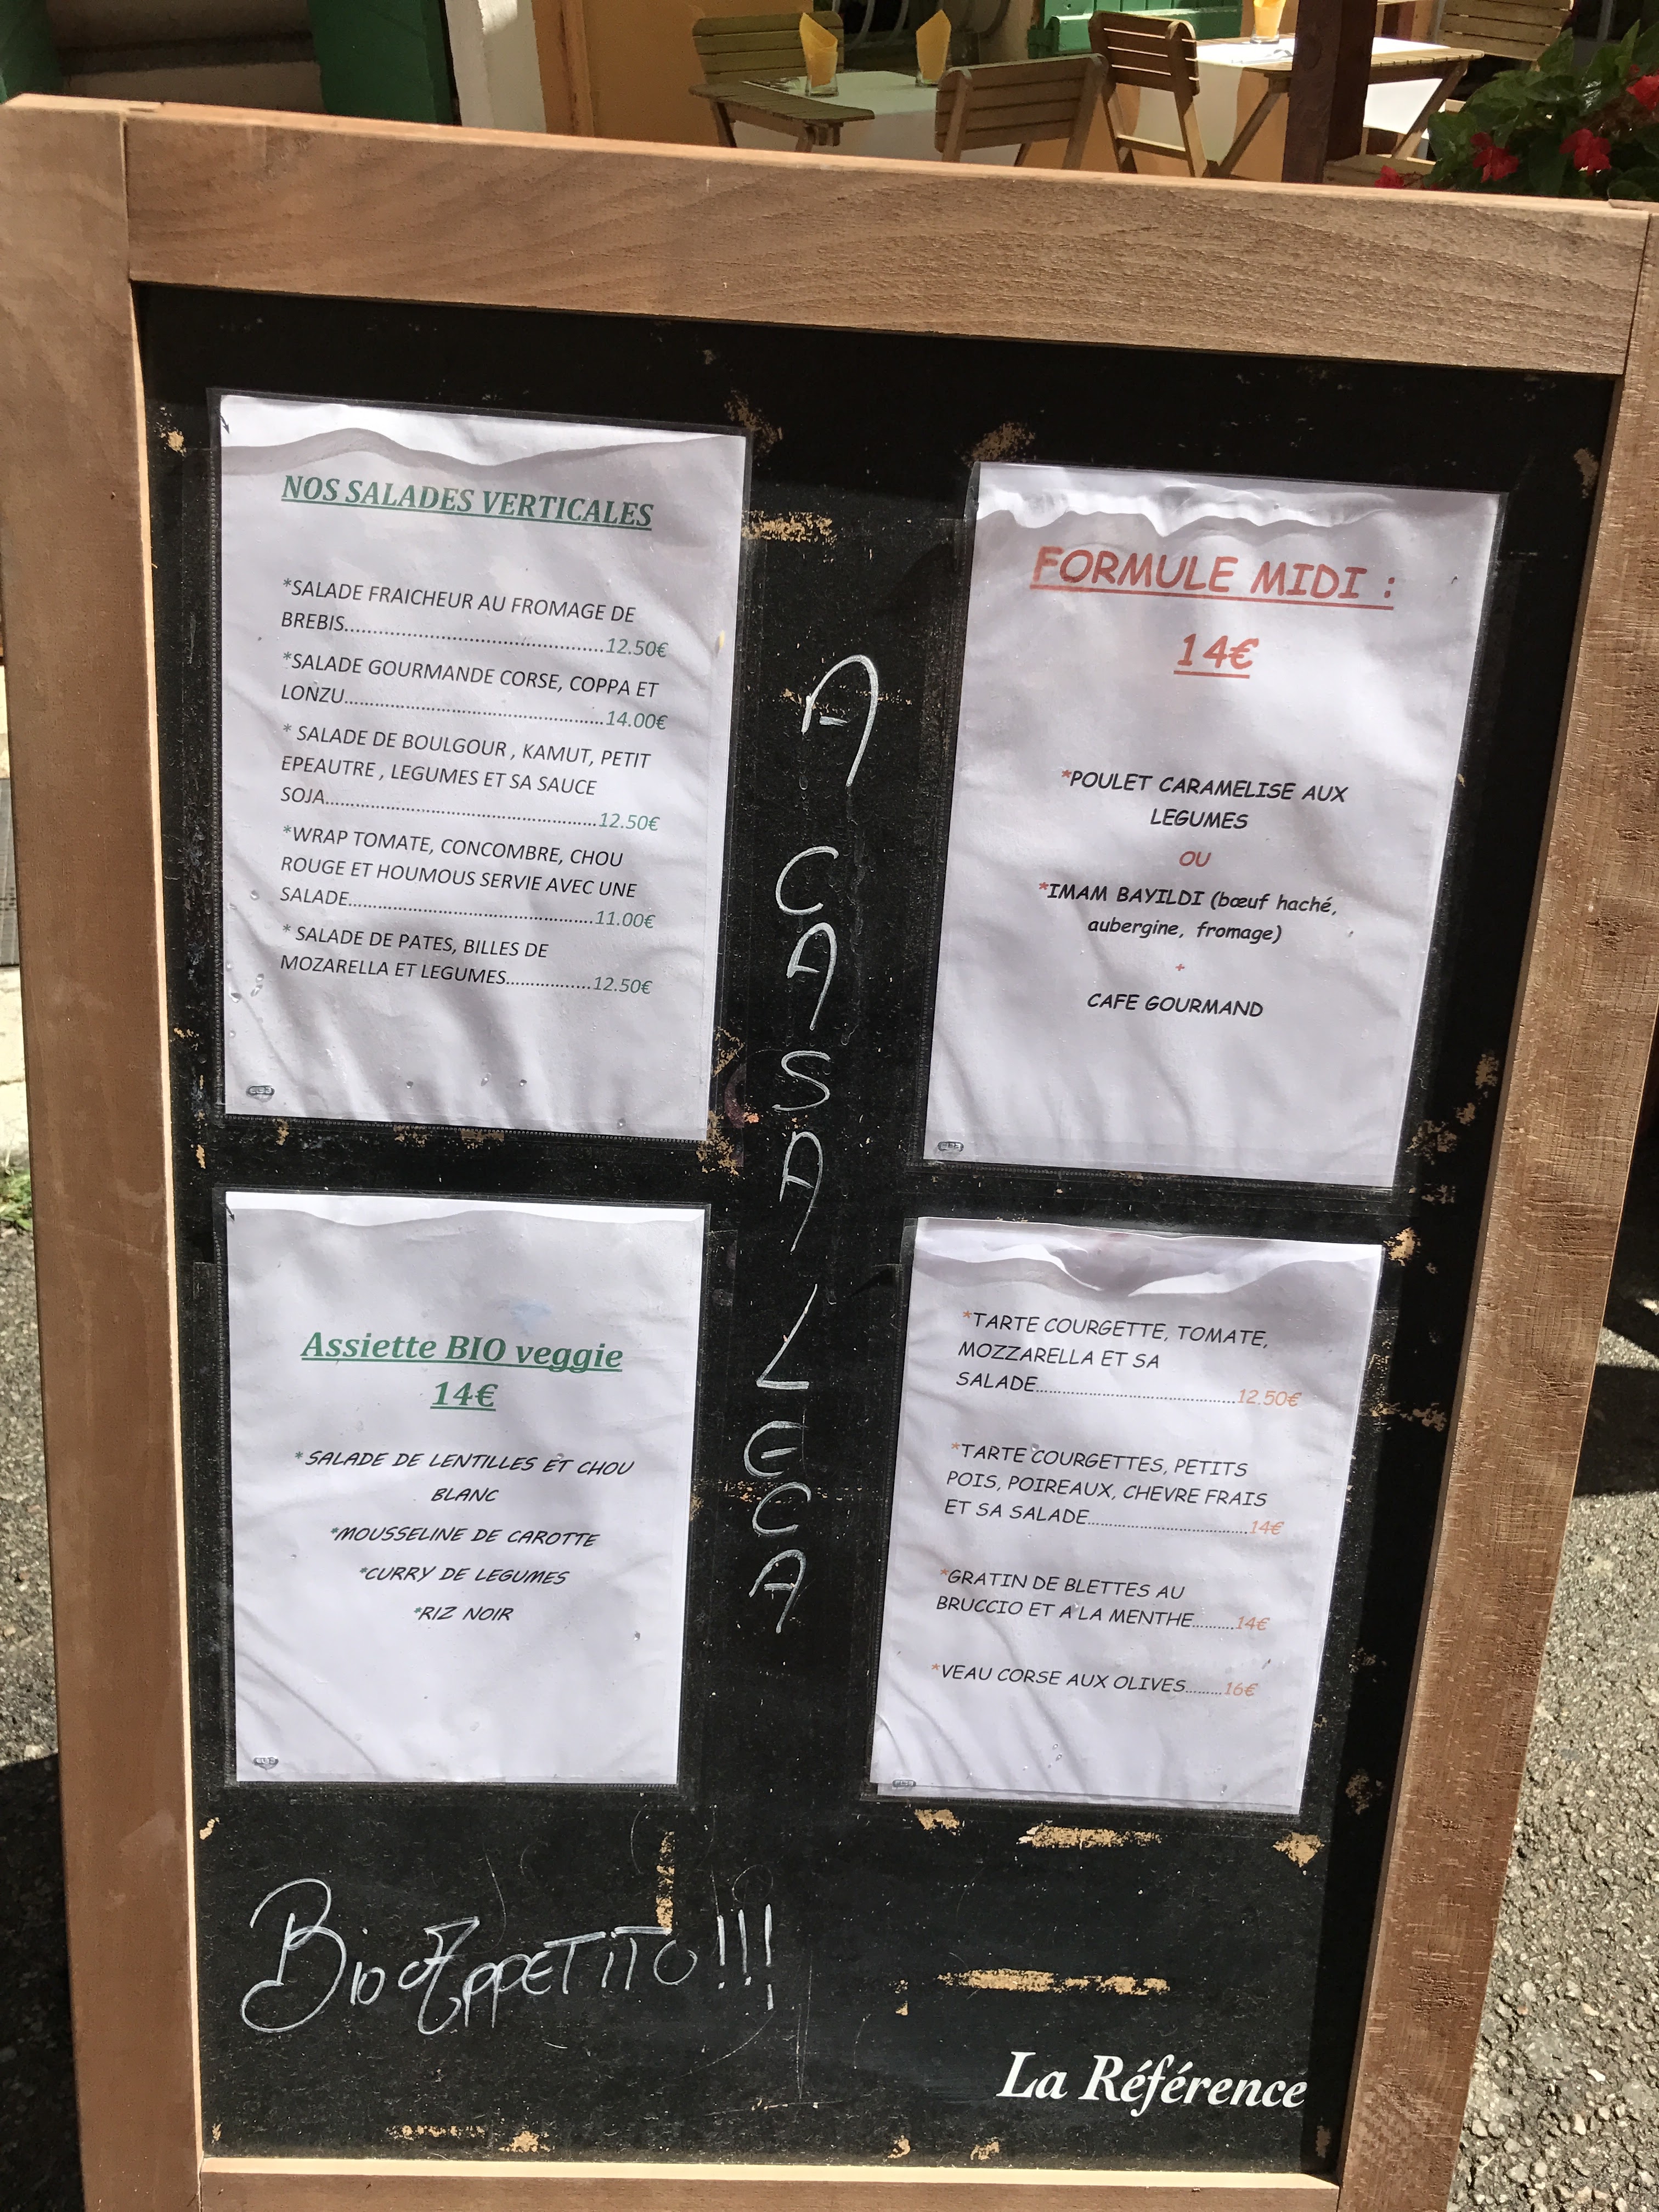 NOS SALADES VERTICALES
*SALADE FRAICHEUR AU FROMAGE DE
BREBIS.............................................12.50€
*SALADE GOURMANDE CORSE, COPPA ET
LONZU.............................................14.00€
* SALADE DE BOULGOUR , KAMUT, PETIT
EPEAUTRE , LEGUMES ET SA SAUCE
SOJA...............................................12.50€
*WRAP TOMATE, CONCOMBRE, CHOU
ROUGE ET HOUMOUS SERVIE AVEC UNE
SALADE...........................................11.00€
* SALADE DE PATES, BILLES DE
MOZARELLA ET LEGUMES...............12.50€
FORMULE MIDI :
14€
*POULET CARAMELISE AUX
LEGUMES
OU
*IMAM BAYILDI (bœuf haché,
aubergine, fromage)
+
CAFE GOURMAND
A CASA LECA
Assiette BIO veggie
14€
* SALADE DE LENTILLES ET CHOU
BLANC
*MOUSSELINE DE CAROTTE
*CURRY DE LEGUMES
*RIZ NOIR
*TARTE COURGETTE, TOMATE,
MOZZARELLA ET SA
SALADE.......................................12.50€
*TARTE COURGETTES, PETITS
POIS, POIREAUX, CHEVRE FRAIS
ET SA SALADE...............................14€
*GRATIN DE BLETTES AU
BRUCCIO ET A LA MENTHE.........14€
*VEAU CORSE AUX OLIVES........16€
APPETITO!!!
La Référence